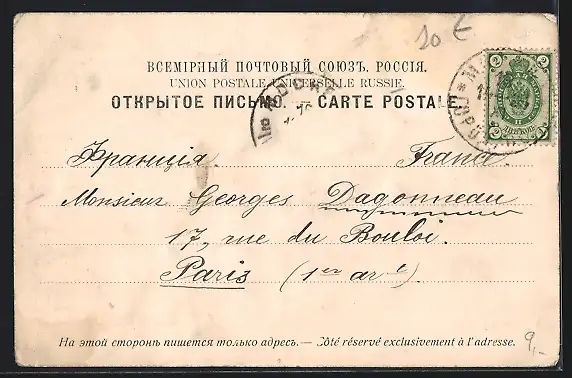 20 €
ВСЕМІРНЫЙ ПОЧТОВЫЙ СОЮЗЪ. РОССІЯ.
UNION POSTALE UNIVERSELLE RUSSIE.
ОТКРЫТОЕ ПИСЬМО. — CARTE POSTALE
МОСК
2 2
Франція. France
Monsieur Georges Dagonneau
17, rue du Bouloi.
Paris (1er art)
На этой сторонѣ пишется только адресъ. — Côté réservé exclusivement à l'adresse.
9,-